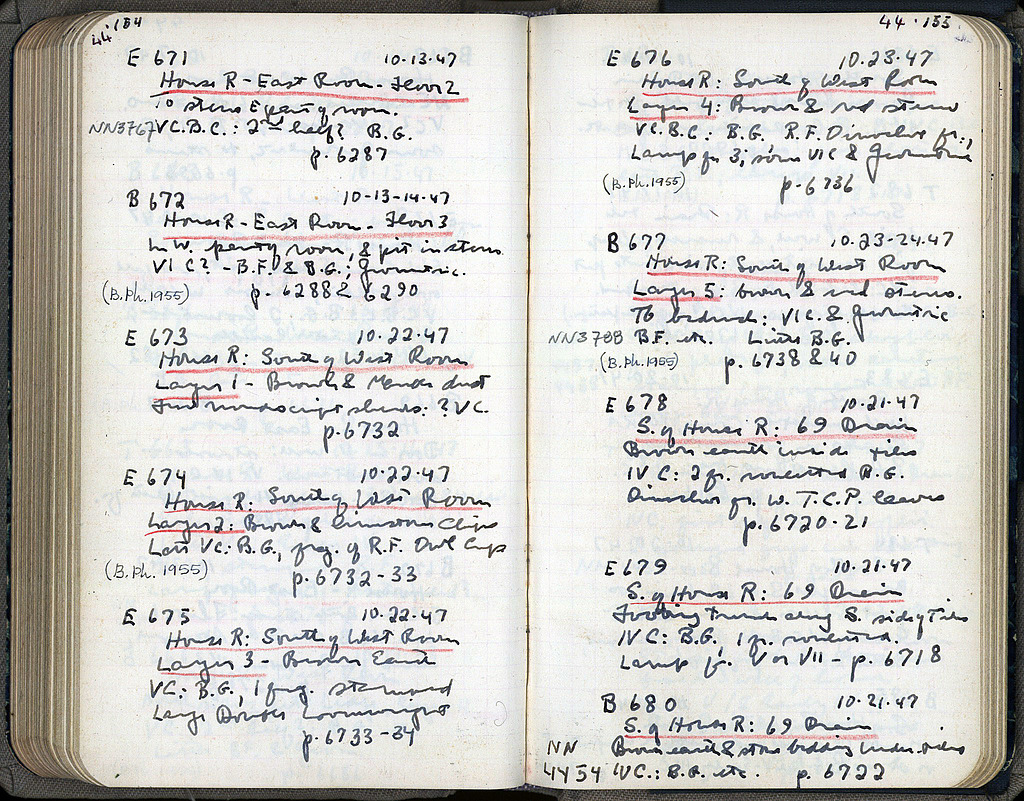 44·154
E 671 10·13·47
House R - East Room - Floor 2
To stereo E part of room.
NN3767 VC.B.C.: 2nd half? B.G.
p. 6287
B 672 10-13-14·47
House R - East Room - Floor 3
In W. part of room, & pit in
VI C? - B.F. & B.G.; Geometric.
(B.Ph.1955) p. 6288 & 6290
E 673 10·22·47
House R: South of West Room
Layer 1 - Brown &  dust
Few nondescript sherds: ? VC.
p. 6732
E 674 10·22·47
House R: South of West Room
Layer 2: Brown & limestone chips
Late VC: B.G., frag. of R.F. Owl Cup
(B.Ph. 1955) p. 6732-33
E 675 10·22·47
House R: South of West Room
Layer 3 - Brown Earth
VC: B.G., 1 frag. stamped
Large Double Loomweight
p. 6733-34
44·155
E 676 10·23·47
House R: South of West Room
Layer 4: Brown & red stereo
VC.B.C.: B.G. R.F. Dinochoe fr.,
Lamp fr. 3, some VIC & Geometric
(B.Ph.1955) p. 6736
B 677 10·23-24·47
House R: South of West Room
Layer 5: brown & red stereo.
To bedrock: VIC. & Geometric
NN3788 B.F. etc. Little B.G.
(B.Ph.1955) p. 6738 & 40
E 678 10·21·47
S. of House R: 69 Drain
Brown earth inside tiles
IV C: 2 fr. rouletted B.G.
Oinochoe fr. W. T.C.P. leaves
p. 6720-21
E 679 10·21·47
S. of House R: 69 Drain
Footing trench along S. side of Tiles
IV C: B.G., 1 fr. rouletted.
Lamp fr. V or VII - p. 6718
B 680 10·21·47
S. of House R: 69 Drain
NN Brown earth & stone bedding under tiles
4454 IVC.: B.G. etc. p. 6722